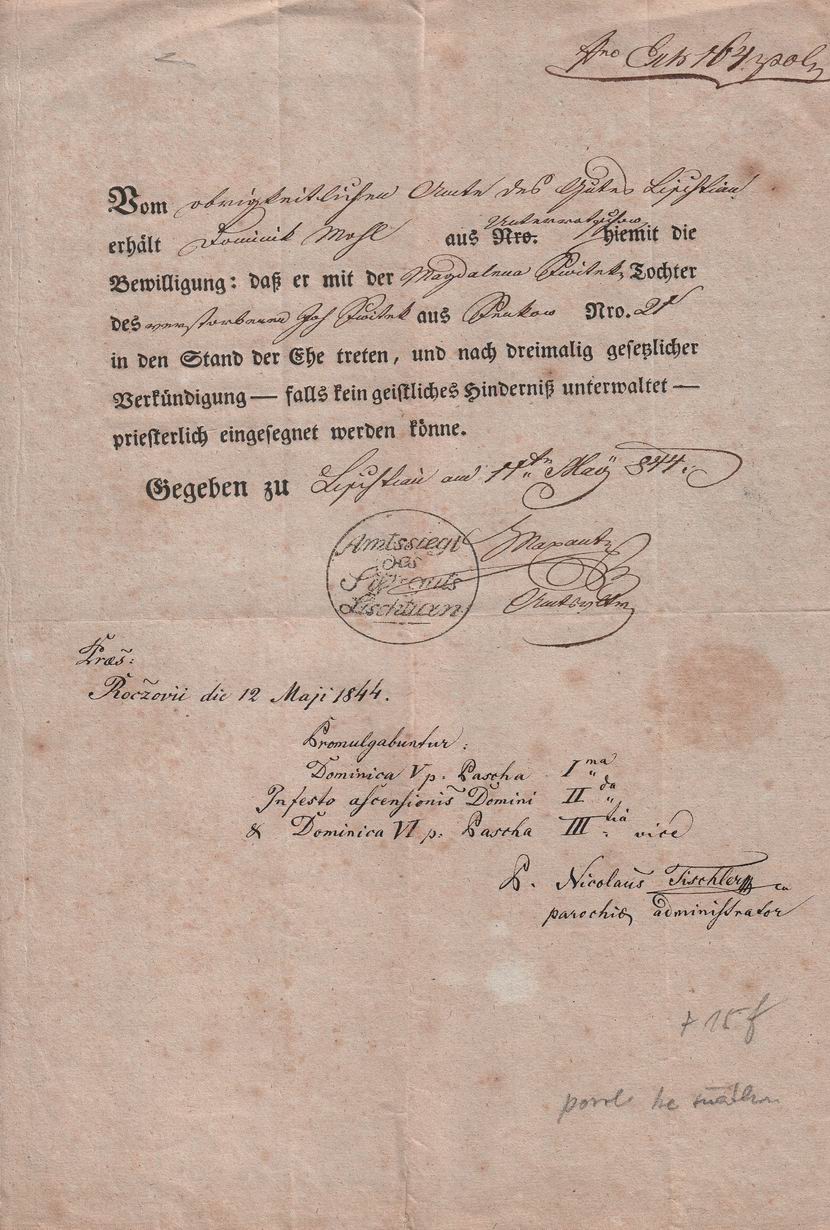 Vom obrigkeitlichen Amte des Gutes Lischtian
erhält Dominik Mohl aus Nro. hiemit die
Bewilligung: daß er mit der Magdalena Zwitek, Tochter
des verstorbenen Joh Zwitek aus Benkow Nro. 21
in den Stand der Ehe treten, und nach dreimalig gesetzlicher
Verkündigung — falls kein geistliches Hinderniß unterwaltet —
priesterlich eingesegnet werden könne.
Gegeben zu Lischtian am 11ten Maÿ 844.
Amtssiegl
des
Lischtian
Præs:
Roczovii die 12 Maji 1844.
Promulgabuntur:
Dominica V p. Pascha I ma
In festo ascensionis Domini II da
& Dominica VI p. Pascha III tia vice
P. Nicolaus Tischler
parochiæ administrator
+ 15 f